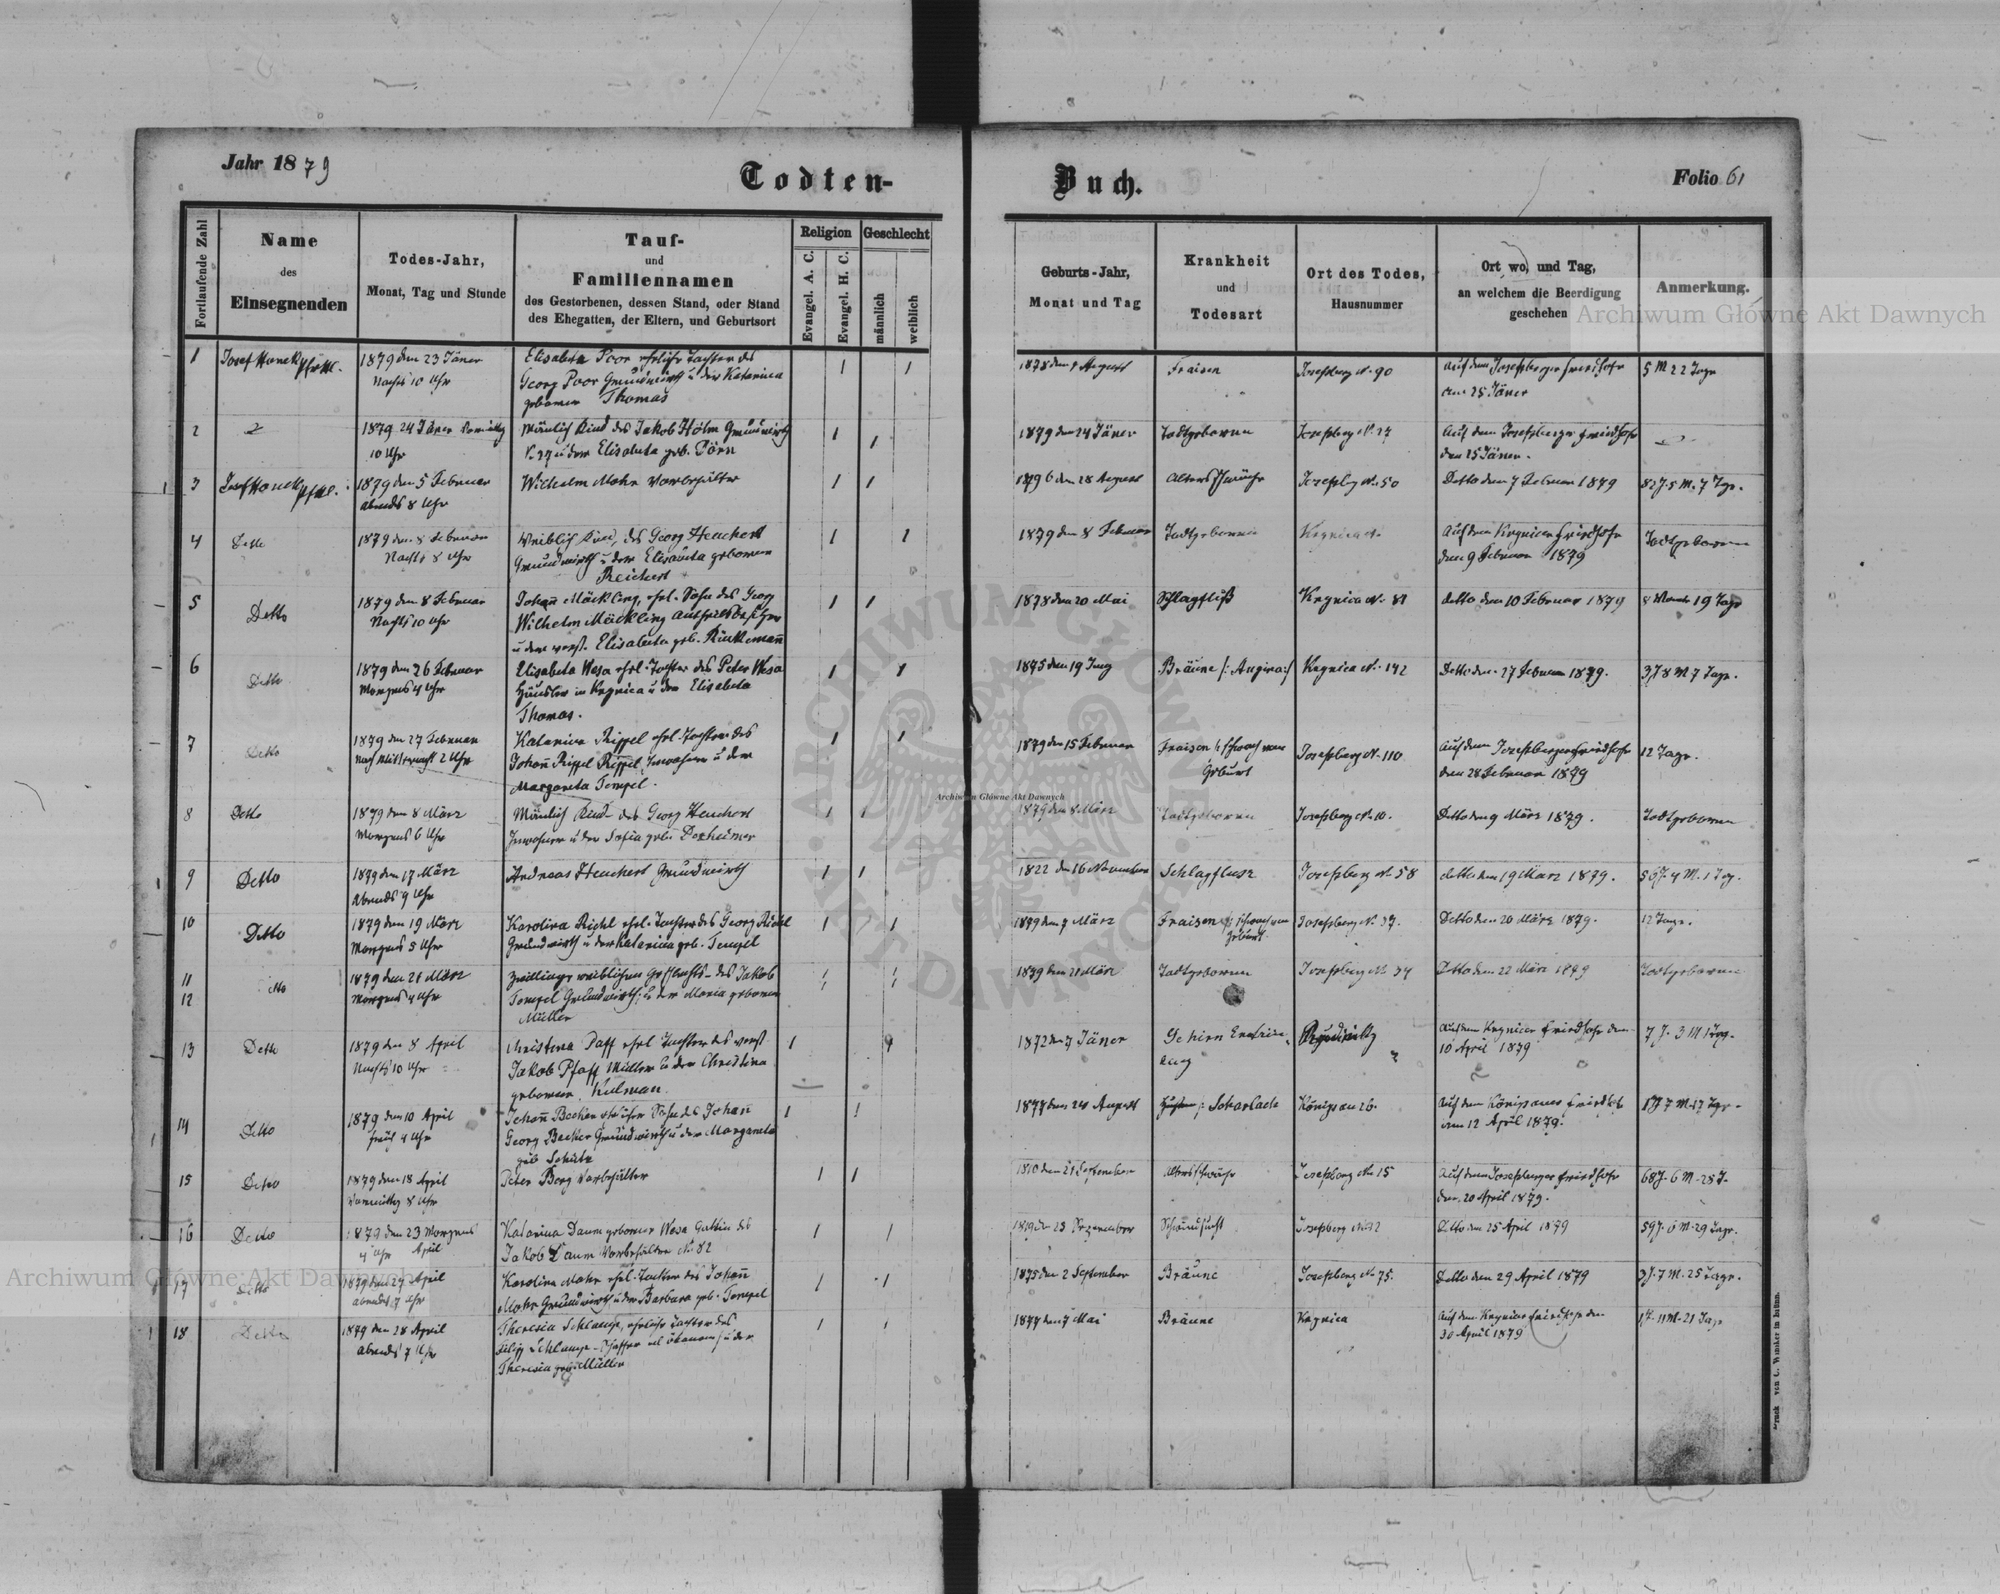 Jahr 1879
Todten-
Buch.
Folio 61
Fortlaufende Zahl
Name
des
Einsegnenden
Todes-Jahr,
Monat, Tag und Stunde
Tauf-
und
Familiennamen
des Gestorbenen, dessen Stand, oder Stand
des Ehegatten, der Eltern, und Geburtsort
Religion
Evangel. A. C.
Evangel. H. C.
Geschlecht
männlich
weiblich
Geburts-Jahr,
Monat und Tag
Krankheit
und
Todesart
Ort des Todes,
Hausnummer
Ort wo, und Tag,
an welchem die Beerdigung
geschehen
Anmerkung.
1 Josef Honek 1879 den 23 Jäner Elisabeta Poor ehliche Tochter des 1878 den August Fraisen Josefsberg N. 90 Auf dem Josefsberger Friedhofe 5 M 22 Tage
Nachts 10 Uhr Georg Poor Grundwirth u der Katarina am 25 Jäner
geborner Thomas
2 1879 24 Jäner 10 Uhr Mänlich Kind des Jakob Hölm Grundwirth 1879 den 24 Jäner Todtgeboren Josefsberg N. 27 Auf dem Josefsberger Friedhofe
u der Elisabeta geb. den 25 Jäner.
3 Josef Honek 1879 den 5 Februar Wilhelm Mohr Vorbehälter 1796 den 28 August Altersschwäche Josefsbg N. 50 Detto den 7 Februar 1879 82 J. 5 M. 7 Tge.
abends 8 Uhr
4 Detto 1879 den 8 Februar Weiblich Kind des Georg Heuchert 1879 den 8 Februar Todtgeboren Krynica Auf dem Krynicer Friedhofe Todtgeboren
Nachts 8 Uhr Grundwirth u der Elisabeta geborner den 9 Februar 1879
Reichert
5 Detto 1879 den 8 Februar Johañ Mäckling, ehl. Sohn des Georg 1878 den 20 Mai Schlagfluß Krynica N. 81 detto den 10 Februar 1879 8 Monate 19 Tage
Nachts 10 Uhr Wilhelm Mäckling
u der verst. Elisabeta geb. Rinkemañ
6 Detto 1879 den 26 Februar Elisabeta Wesa ehl. Tochter des Peter Wesa 1875 den 19 Bräune /: Angina:/ Krynica N. 142 Detto den 27 Februar 1879. 3 J 8 M 7 Tage.
Morgens 4 Uhr Häusler in Krynica u der Elisabeta
Thomas.
7 Detto 1879 den 27 Februar Katarina Rippel ehl. Tochter des 1879 den 15 Februar Fraisen schwach von Josefsberg N. 110 Auf dem Josefsberger Friedhofe 12 Tage.
Nach Mitternacht 2 Uhr Johañ Rippel Rippel, Inwohner u der Geburt den 28 Februar 1879
Margareta Tempel.
8 Detto 1879 den 8 März Mänlich Kind des Georg Heuchert 1879 den 8 März Todtgeboren Josefsberg N. 10. Detto den 9 März 1879. Todtgeboren
Morgens 6 Uhr Inwohner u der Sofia geb. Dexheimer
9 Detto 1879 den 17 März Andreas Heuchert Grundwirth 1822 den 16 November Schlagflusz Josefsberg N. 58 detto den 19 März 1879. 56 J. 4 M. 1 Tag.
abends 9 Uhr
10 Detto 1879 den 19 März Karolina Richl ehl. Tochter des Georg Richl 1879 den 7 März Fraisen schwach von Geburt Josefsberg N. 37. Detto den 20 März 1879. 12 Tage.
Morgens 5 Uhr Grundwirth u der Katarina geb. Tempel
11 Detto 1879 den 21 März Zwillinge weiblichen Geschlechts des Jakob 1879 den 21 März Todtgeboren Josefsberg N. 34 Detto den 22 März 1879 Todtgeboren
12 Morgens 4 Uhr Tempel Grundwirth u der Maria geborner
Müller
13 Detto 1879 den 8 April Christina Paff ehl Tochter des verst 1872 den 7 Jäner Gehirn auf dem Krynicer Friedhofe den 7 J. 3 M 1 Tag.
Nachts 10 Uhr Jakob Pfaff Müller u der Christina 10 April 1879
geborner Kulman.
14 Detto 1879 den 10 April Johañ Becker ehlicher Sohn des Johañ 1877 den 24 August Scharlach Königsau 26. Auf dem Königsauer Friedhofe 1 J 7 M 17 Tge.
früh 4 Uhr Georg Becker Grundwirth u der Margareta am 12 April 1879.
geb
15 Detto 1879 den 18 April Peter Berg Vorbehälter 1810 den 21 September Altersschwäche Josefsberg N. 15 Auf dem Josefsberger Friedhofe 68 J. 6 M. 28 T.
Vormittag 8 Uhr den 20 April 1879.
16 Detto 1879 den 23 Morgens Katarina Daum geborner Wesa Gattin des 1819 den 25 Dezember Josefsberg Detto den 25 April 1879 59 J. M. 29 Tage.
4 Uhr April Jakob Daum Vorbehälter N. 82
17 Detto 1879 den 27 April Karolina Mohr ehl. Tochter des Johañ 1875 den 2 September Bräune Josefsberg N. 75. Detto den 29 April 1879 3 J. 7 M. 25 Tage.
abends 7 Uhr Mohr Grundwirth u der Barbara geb. Tempel
18 Detto 1879 den 28 April Theresia Schlamp, ehliche Tochter des 1877 den 7 Mai Bräune Krynica Auf dem Krynicer Friedhofe den 1 J. 11 M. 21 Tage
abends 7 Uhr Filip Schlamp u der 30 April 1879
Theresia geb Müller
Druck von C. Winiker in Brünn.
Archiwum Główne Akt Dawnych
Archiwum Główne Akt Dawnych
Archiwum Główne Akt Dawnych
ARCHIWUM GŁÓWNE AKT DAWNYCH